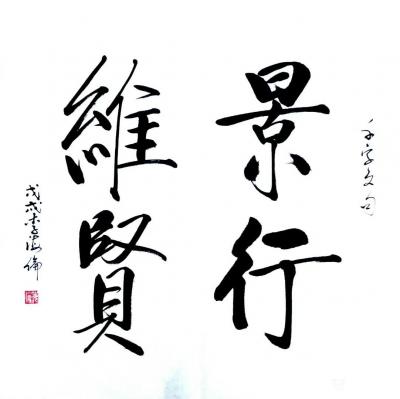 千字文句
景行
維賢
戊戌末